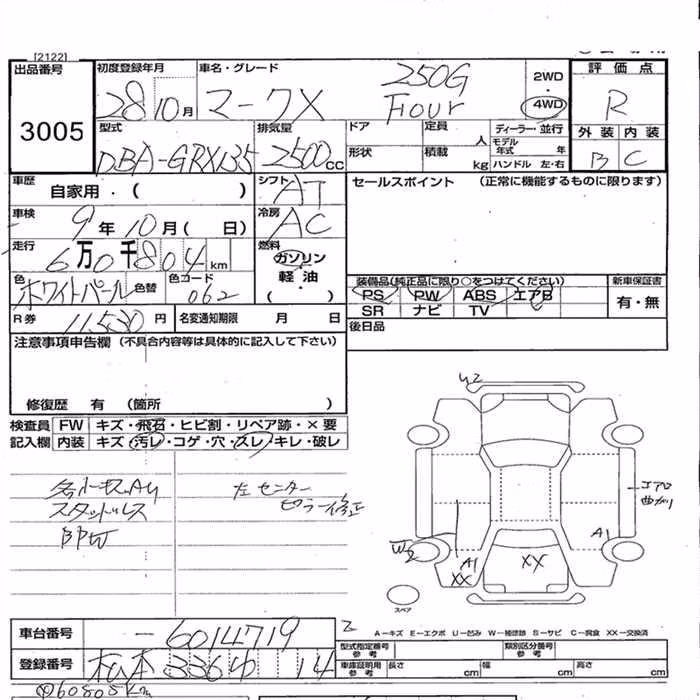 [2122]
出品番号
3005
初度登録年月
28 10月
車名・グレード
マークX
250G
Four
2WD
・
4WD
評価点
R
外装 内装
B C
型式
DBA-GRX135
排気量
2500cc
ドア
形状
定員 人
積載 kg
ディーラー・並行
モデル年式 年
ハンドル 左・右
車歴
自家用・( )
シフト AT
セールスポイント (正常に機能するものに限ります)
車検
9年10月( 日)
冷房 AC
走行
6万0千804km
燃料
ガソリン
軽油
( )
色
ホワイトパール
色替
色コード
062
装備品(純正品に限り○をつけてください)
PS PW ABS エアB
SR ナビ TV
新車保証書
有・無
R券 11,530円
名変通知期限 月 日
後日品
注意事項申告欄 (不具合内容等は具体的に記入して下さい)
修復歴 有 (箇所 )
検査員 FW キズ・飛石・ヒビ割・リペア跡・×要
記入欄 内装 キズ・汚レ・コゲ・穴・スレ・キレ・破レ
スタッドレス
左センター
ピラー修正
W2
エアロ
曲がり
W2
A1
XX
XX
A1
スペア
車台番号
-6014719
2
A−キズ E−エクボ U−凹み W−補修跡 S−サビ C−腐食 XX−交換済
型式指定番号
参考
類別区分番号
参考
登録番号
松本 336 14
車庫証明用
参考
長さ cm 幅 cm 高さ cm
60805km